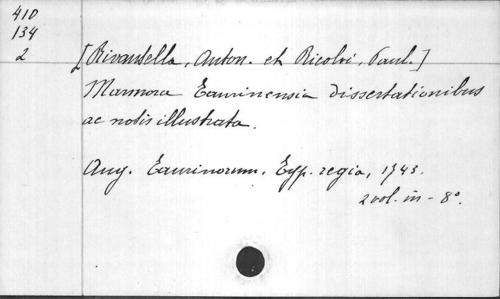 410
134
2
[Rivautella, Anton. et Ricolvi, Paul.]
Marmora Taurinensia dissertationibus
ac notis illustrata.
Aug. Taurinorum. Typ. regia, 1743.
2 vol. in-8°.